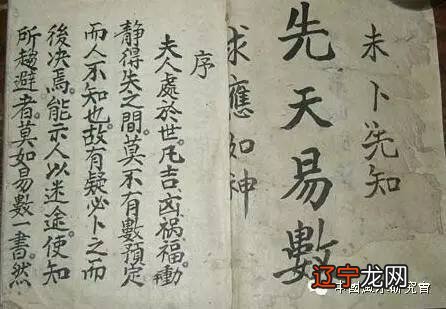 未卜先知
先天易數
求應如神
序
夫人處於世。凡吉凶祸福。動
靜得失之間。莫不有數預定
而人不知也。故有疑必卜之而
後决焉。能示人以迷途。使知
所趨避者。莫如易數一書。然
辽宁龙网